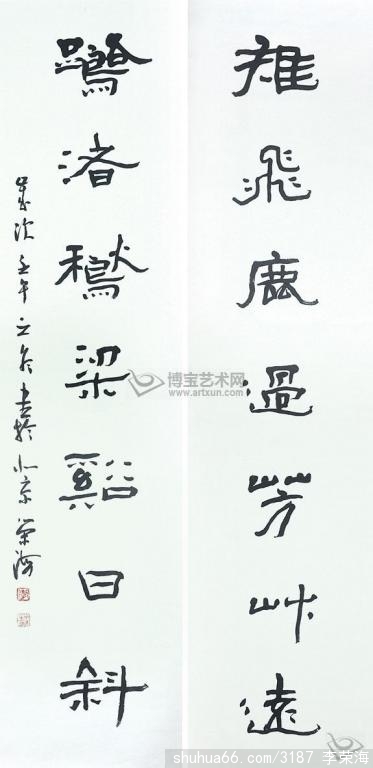 雉飛鹿過芳艸遠
鷺渚鶖梁谿日斜
歲次壬午之冬書於北京 榮海
博宝艺术网
www.artxun.com
shuhua66.com/3187 李荣海